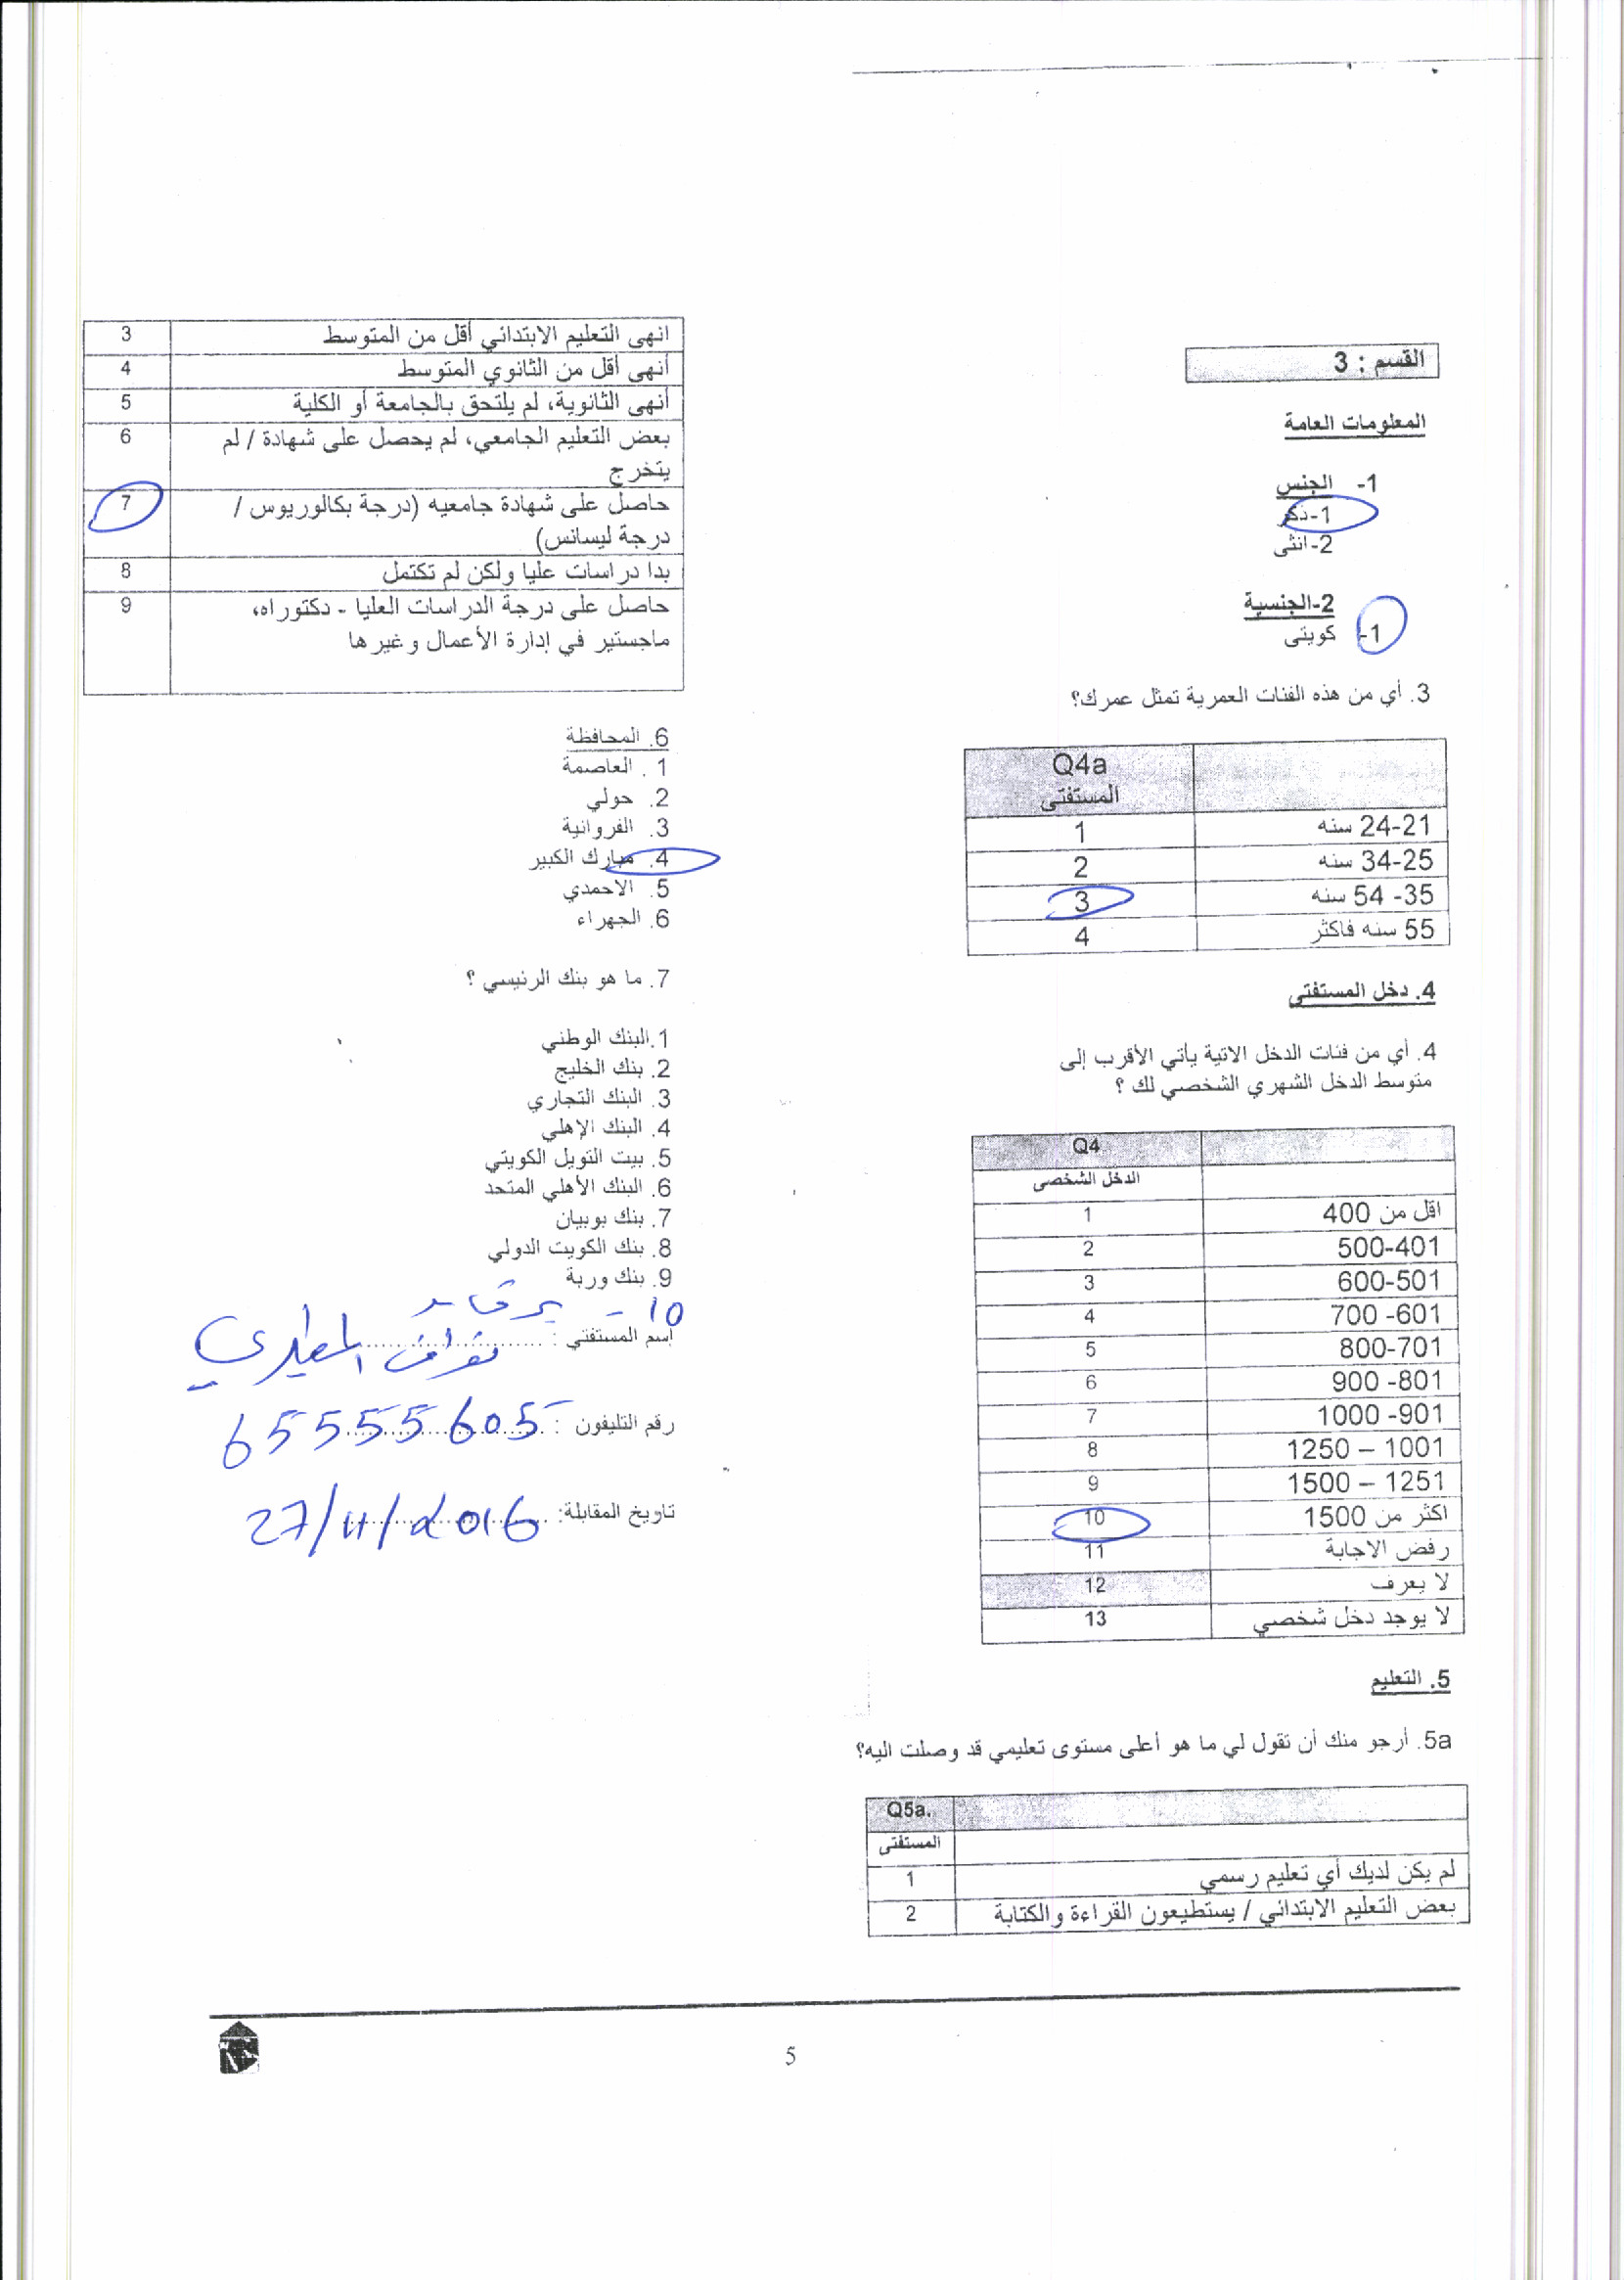 القسم : 3
المعلومات العامة
1- الجنس
1-ذكر
2-انثى
2-الجنسية
1- كويتى
3. أي من هذه الفئات العمرية تمثل عمرك؟
Q4a
المستفتى
24-21 سنه 1
34-25 سنه 2
35- 54 سنه 3
55 سنه فاكثر 4
4. دخل المستفتى
4. أي من فئات الدخل الاتية يأتي الأقرب إلى
متوسط الدخل الشهري الشخصي لك ؟
Q4
الدخل الشخصى
اقل من 400 1
500-401 2
600-501 3
700 -601 4
800-701 5
900 -801 6
1000 -901 7
1250 – 1001 8
1500 – 1251 9
اكثر من 1500 10
رفض الاجابة 11
لا يعرف 12
لا يوجد دخل شخصي 13
5. التعليم
5a. أرجو منك أن تقول لي ما هو أعلى مستوى تعليمي قد وصلت اليه؟
Q5a.
المستفتى
لم يكن لديك أي تعليم رسمي 1
بعض التعليم الابتدائي / يستطيعون القراءة والكتابة 2
انهى التعليم الابتدائي أقل من المتوسط 3
أنهى أقل من الثانوي المتوسط 4
أنهى الثانوية، لم يلتحق بالجامعة أو الكلية 5
بعض التعليم الجامعي، لم يحصل على شهادة / لم 6
يتخرج
حاصل على شهادة جامعيه (درجة بكالوريوس / 7
درجة ليسانس)
بدا دراسات عليا ولكن لم تكتمل 8
حاصل على درجة الدراسات العليا - دكتوراه، 9
ماجستير في إدارة الأعمال وغيرها
6. المحافظة
1 . العاصمة
2. حولي
3. الفروانية
4. مبارك الكبير
5. الاحمدي
6. الجهراء
7. ما هو بنك الرئيسي ؟
1.البنك الوطني
2. بنك الخليج
3. البنك التجاري
4. البنك الإهلي
5. بيت التويل الكويتي
6. البنك الأهلي المتحد
7. بنك بوبيان
8. بنك الكويت الدولي
9. بنك وربة
10 - برقان
اسم المستفتي : نواف المطيري
رقم التليفون : 65555605
تاريخ المقابلة: 27/11/2016
5